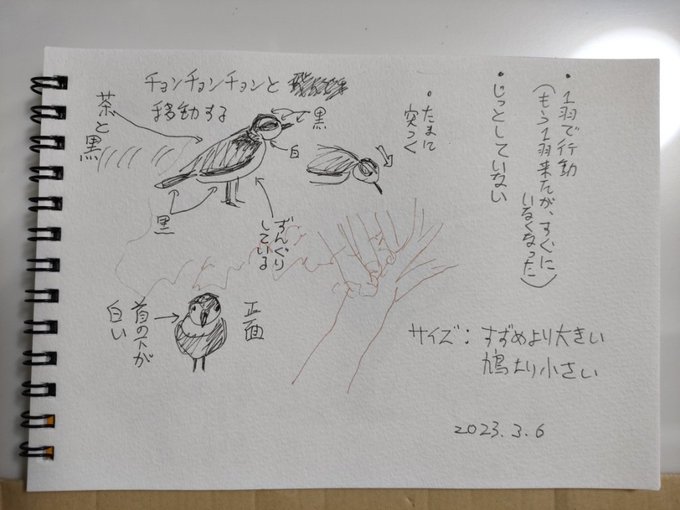 ・1羽で行動
(もう1羽来たが、すぐに
いなくなった)
・じっとしていない
・たまに
突っつく
チョンチョンチョンと
移動する
茶と
黒
黒
白
黒
ずんぐり
している
正面
首の下が
白い
サイズ：すずめより大きい
鳩より小さい
2023.3.6